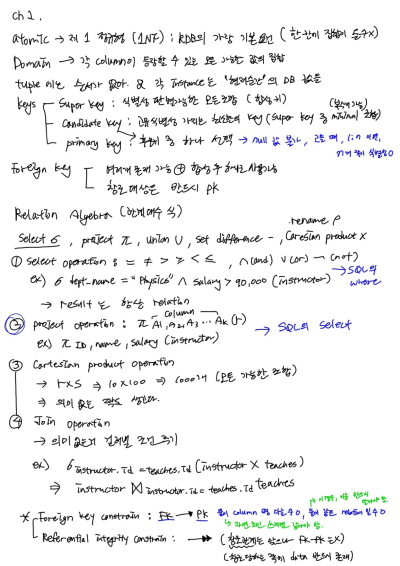 ch 2.
atomic → 제 1 정규형 (1NF) ; RDB의 가장 기본요건
Domain → 각 column이 등장할 수 있는 모든 가능한 값의 집합
tuple 에는 순서가 없다. & 각 instance는 "현재순간"의 DB
keys Super key : 식별성 만족하는 모든 조합
Candidate key : 최소한의 key (super key 중 minimal 조합)
primary key : 후보키 중 하나 선택 → null 값 불가
Foreign key 여러개 존재 가능
참조대상은 반드시 PK
Relation Algebra (관계대수 식)
rename ρ
Select σ, project π, union ∪, set difference -, Caresian product x
① select operation : = ≠ > ≥ < ≤ , ∧(and) ∨(or) ¬(not)
ex) σ dept-name = "Physics" ∧ salary > 90,000 (instructor) → SQL의 where
→ result는 항상 relation
column
② project operation : π A1, A2, A3 ... Ak (r) → SQL의 select
ex) π ID, name, salary (instructor)
③ Cartesian product operation
→ r×s ⇒ 10×100 ⇒ 1000개 (모든 가능한 조합)
⇒ 의미 없는 생긴다.
④ Join operation
→ 의미없는거 조건 주기
ex) σ instructor.id = teaches.id (instructor × teaches)
⇒ instructor ⋈ instructor.id = teaches.id teaches
* Foreign key constrain : FK → PK 둘이 column 명 다를수 O, 둘이 같은 relation 일수 O
Referential integrity constrain : (참조관계는 있으나 FK-PK는 X)
(참조당하는 쪽에 data 반드시 존재)